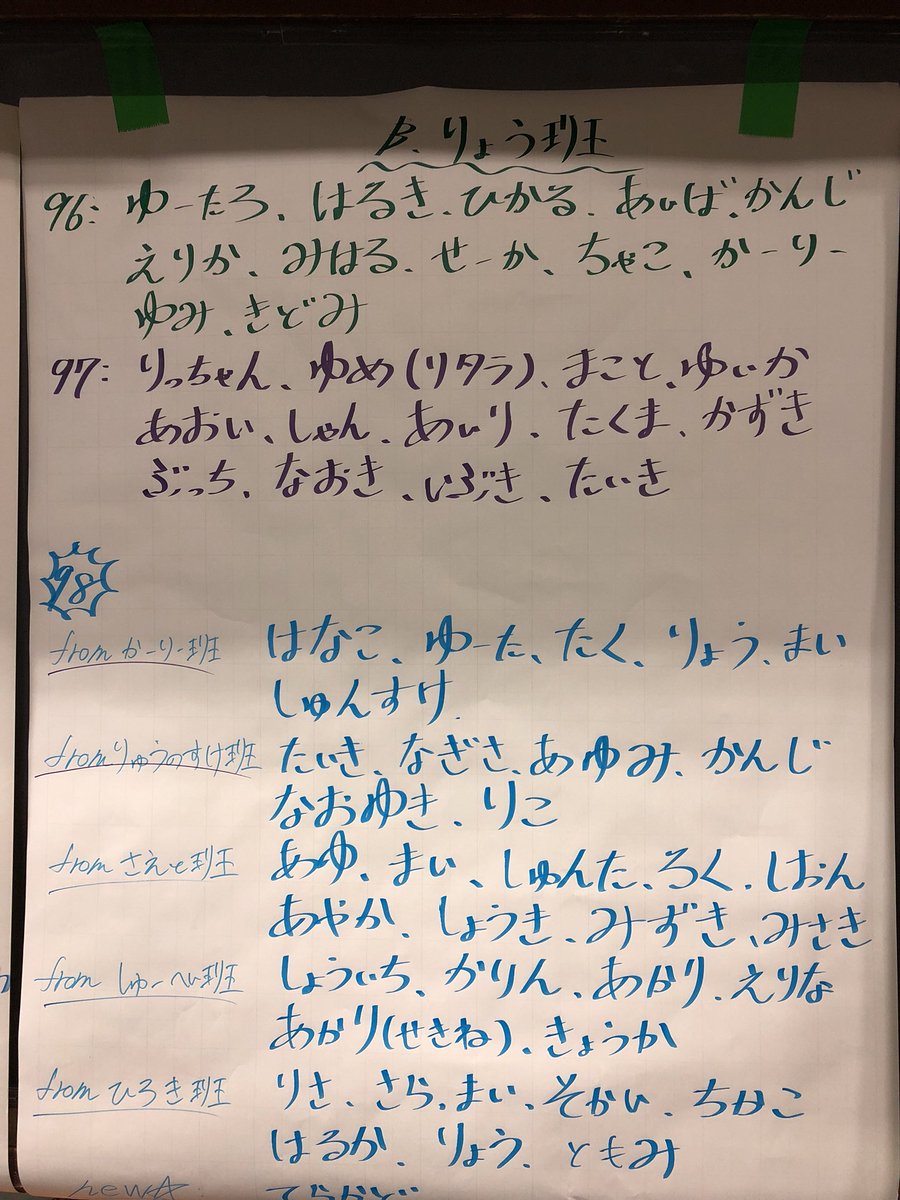 B. りょう班
96: ゆーたろ、はるき、ひかる、あいば、かんじ
えりか、みはる、せーか、ちゃこ、かーりー
ゆみ、きどみ
97: りっちゃん、ゆめ(リタラ)、まこと、ゆいか
あおい、しゃん、あいり、たくま、かずき
ぶっち、なおき、いぶき、たいき
98
from かーりー班 はなこ、ゆーた、たく、りょう、まい
しゅんすけ
from りゅうのすけ班 たいき、なぎさ、あゆみ、かんじ
なおゆき、りこ
from さえと班 あゆ、まい、しゅんた、ろく、しおん
あやか、しょうき、みずき、みさき
from しゅーへい班 しょういち、かりん、あかり、えりな
あかり(せきね)、きょうか
from ひろき班 りさ、さら、まい、そかい、ちかこ
はるか、りょう、ともみ
new☆ てらかど